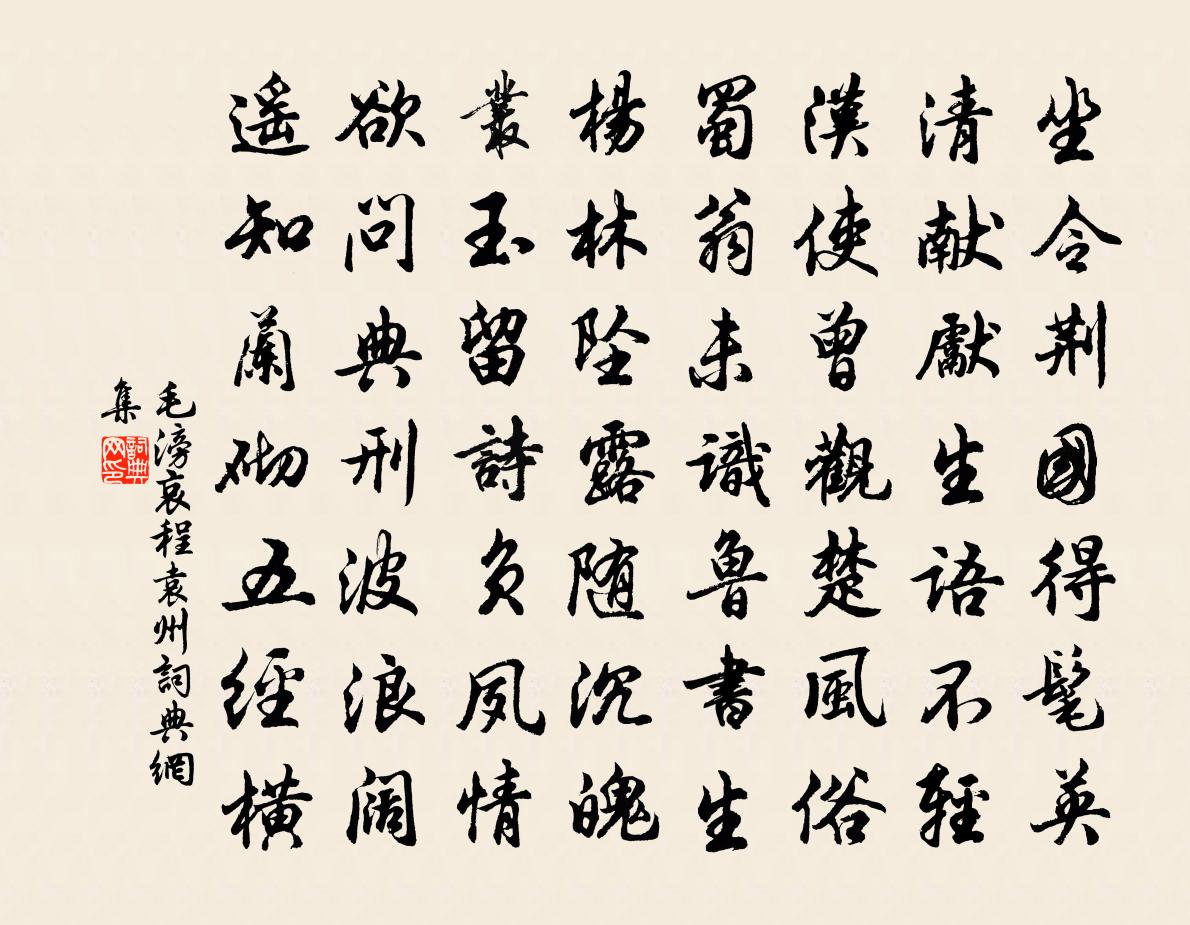 坐令荆國得髦英
清献獻生語不輕
漢使曾觀楚風俗
蜀翁未識魯書生
楊林坠露随沉魄
叢玉留詩負夙情
欲問典刑波浪阔
遥知蘭砌五經横
毛滂哀程袁州詞典網
集
詞典網印